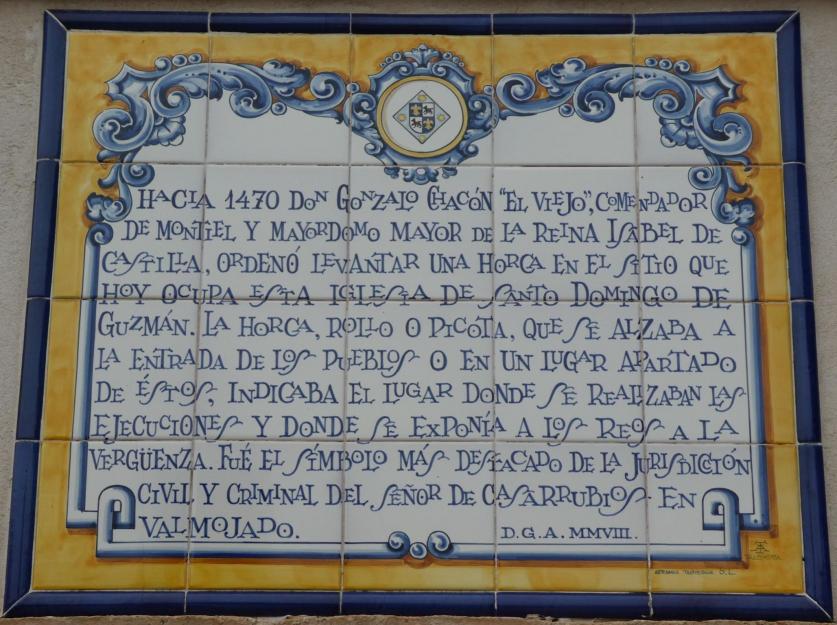 HACIA 1470 DON GONZALO CHACÓN "EL VIEJO", COMENDADOR
DE MONTIEL Y MAYORDOMO MAYOR DE LA REINA ISABEL DE
CASTILLA, ORDENÓ LEVANTAR UNA HORCA EN EL SITIO QUE
HOY OCUPA ESTA IGLESIA DE SANTO DOMINGO DE
GUZMÁN. LA HORCA, ROLLO O PICOTA, QUE SE ALZABA A
LA ENTRADA DE LOS PUEBLOS O EN UN LUGAR APARTADO
DE ÉSTOS, INDICABA EL LUGAR DONDE SE REALIZABAN LAS
EJECUCIONES Y DONDE SE EXPONÍA A LOS REOS A LA
VERGÜENZA. FUÉ EL SÍMBOLO MÁS DESTACADO DE LA JURISDICCIÓN
CIVIL Y CRIMINAL DEL SEÑOR DE CASARRUBIOS EN
VALMOJADO.
D.G.A. MMVIII.